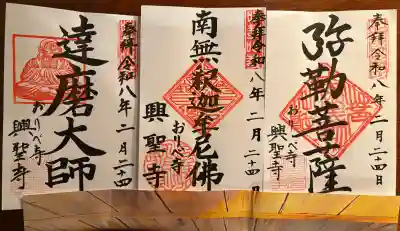 奉拝令和八年二月二十四日
弥勒菩薩
おりべ寺
興聖寺
奉拝令和八年二月二十四日
南無釈迦牟尼佛
おりべ寺
興聖寺
奉拝令和八年二月二十四日
達磨大師
おりべ寺
興聖寺